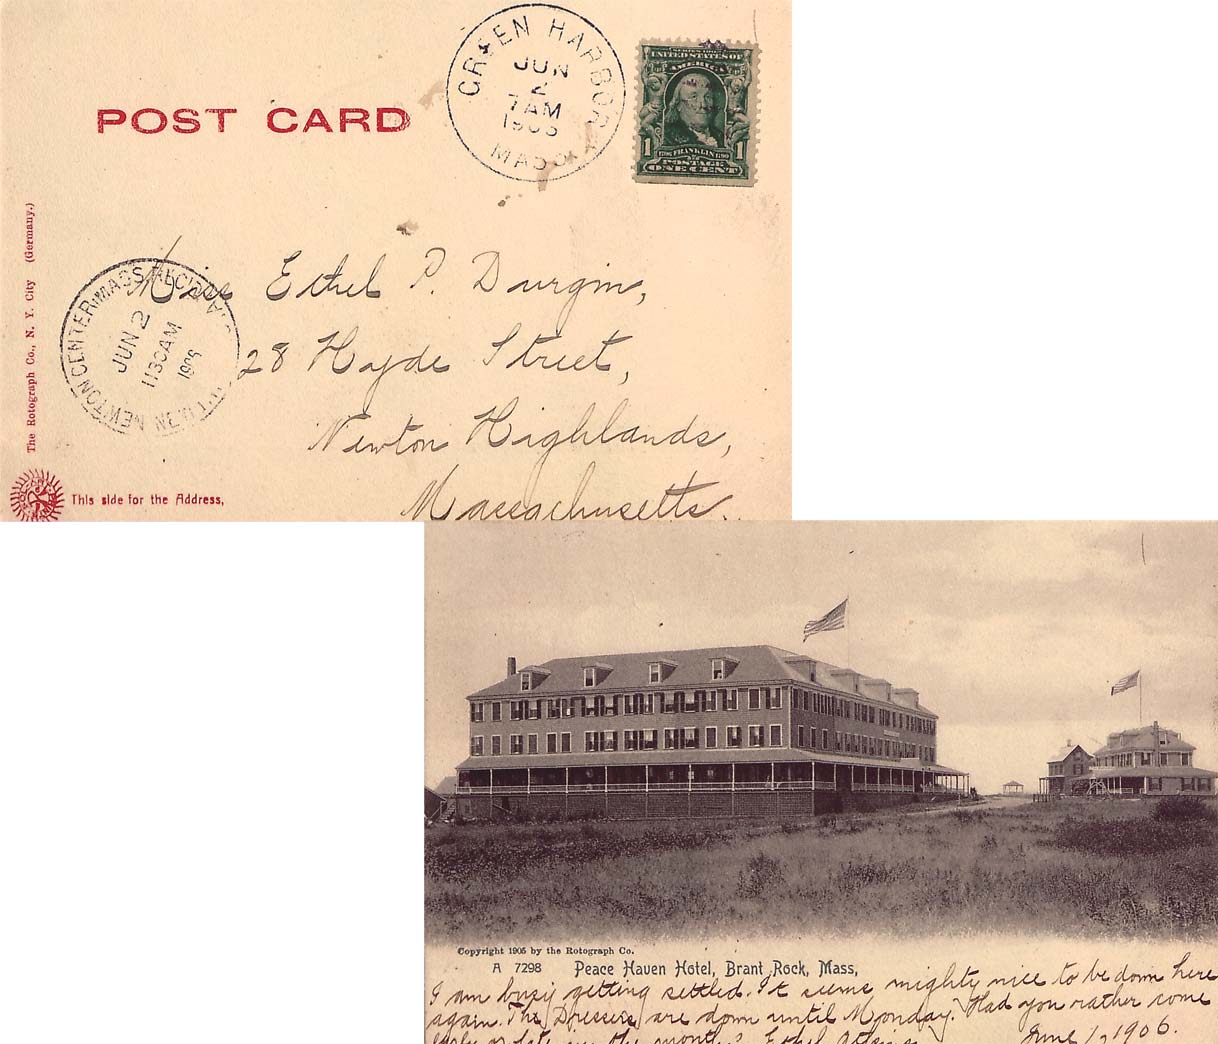 POST CARD
GREEN HARBOR
JUN
2
7AM
1906
MASS.
SERIES 1902
UNITED STATES OF
AMERICA
1 1706 FRANKLIN 1790 1
POSTAGE
ONE CENT
The Rotograph Co., N. Y. City (Germany.)
NEWTON CENTER MASS. REC'D
JUN 2
1130AM
1906
Miss Ethel P. Durgin,
28 Hyde Street,
Newton Highlands,
Massachusetts.
This side for the Address,
Copyright 1905 by the Rotograph Co.
A 7298 Peace Haven Hotel, Brant Rock, Mass,
I am busy getting settled. It seems mighty nice to be down here
again. The Dressers are down until Monday. Had you rather come
early or late in the month? Ethel June 1, 1906.